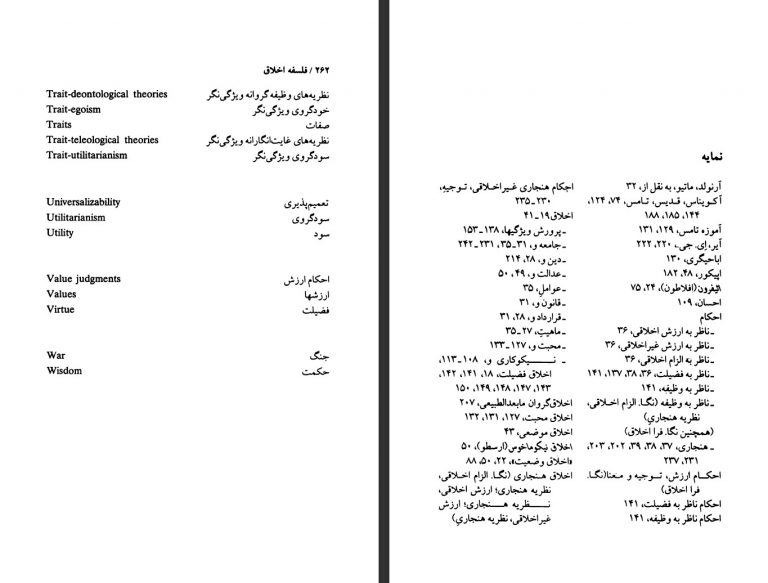 ۲۶۲ / فلسفه اخلاق
Trait-deontological theories نظریه‌های وظیفه‌گروانه ویژگی‌نگر
Trait-egoism خودگروی ویژگی‌نگر
Traits صفات
Trait-teleological theories نظریه‌های غایت‌انگارانه ویژگی‌نگر
Trait-utilitarianism سودگروی ویژگی‌نگر
Universalizability تعمیم‌پذیری
Utilitarianism سودگروی
Utility سود
Value judgments احکام ارزش
Values ارزشها
Virtue فضیلت
War جنگ
Wisdom حکمت
نمایه
آرنولد، ماتیو، به نقل از، ۳۲
آکویناس، قدیس، تامس، ۷۴، ۱۲۴،
۱۴۴، ۱۸۵، ۱۸۸
آموزه تامس، ۱۲۹، ۱۳۱
آیر، اِی. جی.، ۲۲۰، ۲۲۲
اباحیگری، ۱۳۰
اپیکور، ۴۸، ۱۸۲
اثیفرون (افلاطون)، ۲۴، ۷۵
احسان، ۱۰۹
احکام
ـ ناظر به ارزش اخلاقی، ۳۶
ـ ناظر به ارزش غیراخلاقی، ۳۶
ـ ناظر به الزام اخلاقی، ۳۶
ـ ناظر به فضیلت، ۳۶، ۳۸، ۱۳۷، ۱۴۱
ـ ناظر به وظیفه، ۱۴۱
ـ ناظر به وظیفه (نگا. الزام اخلاقی،
نظریه هنجاریِ)
(همچنین نگا. فرا اخلاق)
ـ هنجاری، ۳۷، ۳۸، ۳۹، ۲۰۲، ۲۰۳،
۲۳۱، ۲۳۷
احکـام ارزش، تـوجیه و مـعنا(نگـا.
فرا اخلاق)
احکام ناظر به فضیلت، ۱۴۱
احکام ناظر به وظیفه، ۱۴۱
احکام هنجاری غیراخلاقی، توجیهِ،
۲۳۰ـ۲۳۵
اخلاق۱۹ـ۴۱
ـ پرورش ویژگیها، ۱۳۸ـ۱۵۳
ـ جامعه و، ۳۱ـ۳۵، ۲۳۱ـ۲۴۲
ـ دین و، ۲۸، ۲۱۴
ـ عدالت و، ۴۹، ۵۰
ـ عواملِ، ۳۵
ـ قانون و، ۳۱
ـ قرارداد و، ۲۸، ۳۱
ـ ماهیتِ، ۲۷ـ۳۵
ـ محبت و، ۱۲۷ـ۱۳۳
ـ نـــیکوکاری و، ۱۰۸ـ۱۱۳،
اخلاق فضیلت، ۱۸، ۱۴۱، ۱۴۲،
۱۴۳، ۱۴۷، ۱۴۸، ۱۴۹، ۱۵۰
اخلاق‌گروان مابعدالطبیعی، ۲۰۷
اخلاق محبت، ۱۲۷، ۱۳۱، ۱۳۲
اخلاق موضعی، ۴۳
اخلاق نیکوماخوس (ارسطو)، ۵۰
«اخلاق وضعیت»، ۲۲، ۵۰، ۸۸
اخلاق هنجاری (نگـا. الزام اخلاقی،
نظریه هنجاری؛ ارزش اخلاقی،
نــظریه هـــنجاری؛ ارزش
غیراخلاقی، نظریه هنجاریِ)